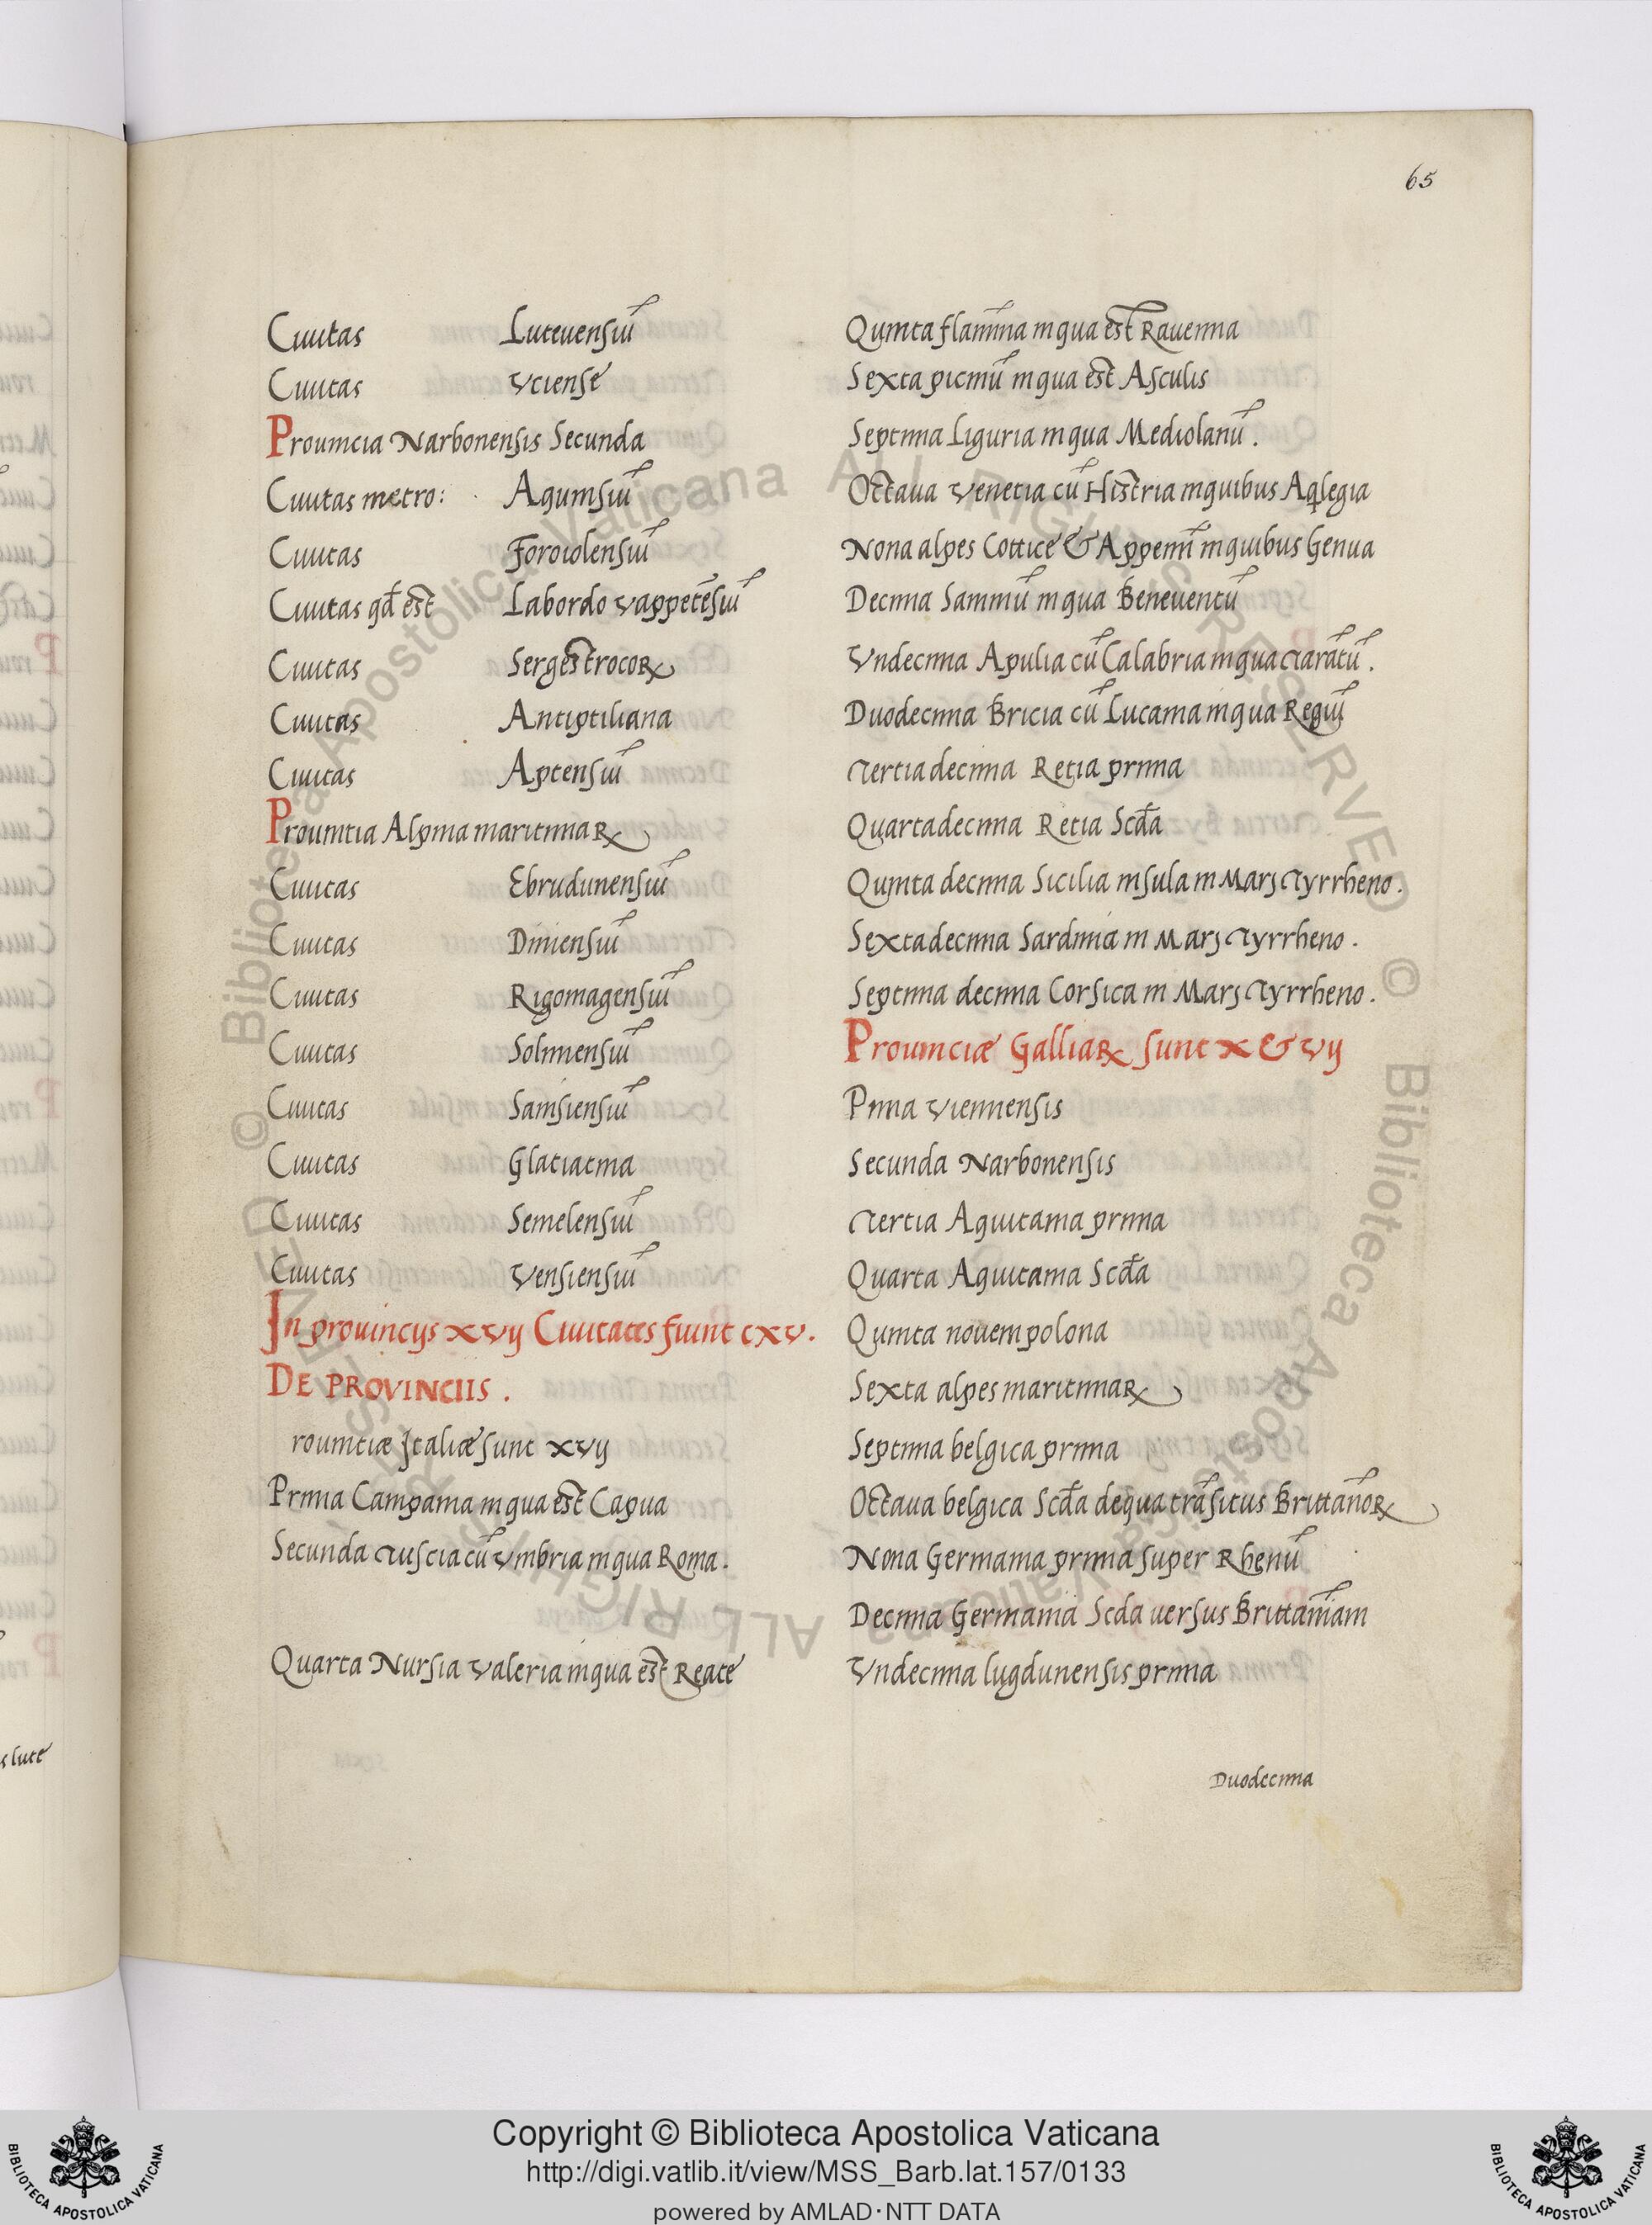 65
Ciuitas Luteuensiū
Ciuitas Vciense
Prouincia Narbonensis Secunda
Ciuitas metro: Aguinsiū
Ciuitas Foroiolensiū
Ciuitas qđ est Labordo vappetēsiū
Ciuitas Sergestrocoꝝ
Ciuitas Antiptiliana
Ciuitas Aptensiū
Prouintia Alpina maritimaꝝ
Ciuitas Ebrudunensiū
Ciuitas Diniensiū
Ciuitas Rigomagensiū
Ciuitas Solinnensiū
Ciuitas Sainsiensiū
Ciuitas Glatiatina
Ciuitas Semelensiū
Ciuitas Vensiensiū
In prouincijs xvij Ciuitates fiunt cxv.
DE PROVINCIIS.
rouintiæ Italiæ sunt xvij
Prima Campania in qua est Capua
Secunda Tuscia cū Vmbria in qua Roma.
Quarta Nursia Valeria in qua est Reate
Quinta flaminia in qua est Rauenna
Sexta picinū in qua est Asculis
Septima Liguria in qua Mediolanū.
Octaua Venetia cū Histria in quibus Aqlegia
Nona alpes Cottice & Appenī in quibus Genua
Decima Samniū in qua Beneuentū
Vndecima Apulia cū Calabria in qua Tarātū.
Duodecima Bricia cū Lucania in qua Regiū
Tertiadecima Retia prima
Quartadecima Retia Scđa
Quinta decima Sicilia insula in Mari Tyrrheno.
Sextadecima Sardinia in Mari Tyrrheno.
Septima decima Corsica in Mari Tyrrheno.
Prouinciæ Galliaꝝ sunt x & vij
Prima Viennensis
Secunda Narbonensis
Tertia Aquitania prima
Quarta Aquitania Scđa
Quinta nouempolona
Sexta alpes maritimaꝝ
Septima belgica prima
Octaua belgica Scđa de qua trāsitus Brittānoꝝ
Nona Germania prima super Rhenū
Decima Germania Scda uersus Brittāniam
Vndecima lugdunensis prima
Duodecima
s lute
Copyright © Biblioteca Apostolica Vaticana
http://digi.vatlib.it/view/MSS_Barb.lat.157/0133
powered by AMLAD·NTT DATA
BIBLIOTECA APOSTOLICA VATICANA
BIBLIOTECA APOSTOLICA VATICANA
© Biblioteca Apostolica Vaticana ALL RIGHTS RESERVED
© Biblioteca Apostolica Vaticana ALL RIGHTS RESERVED